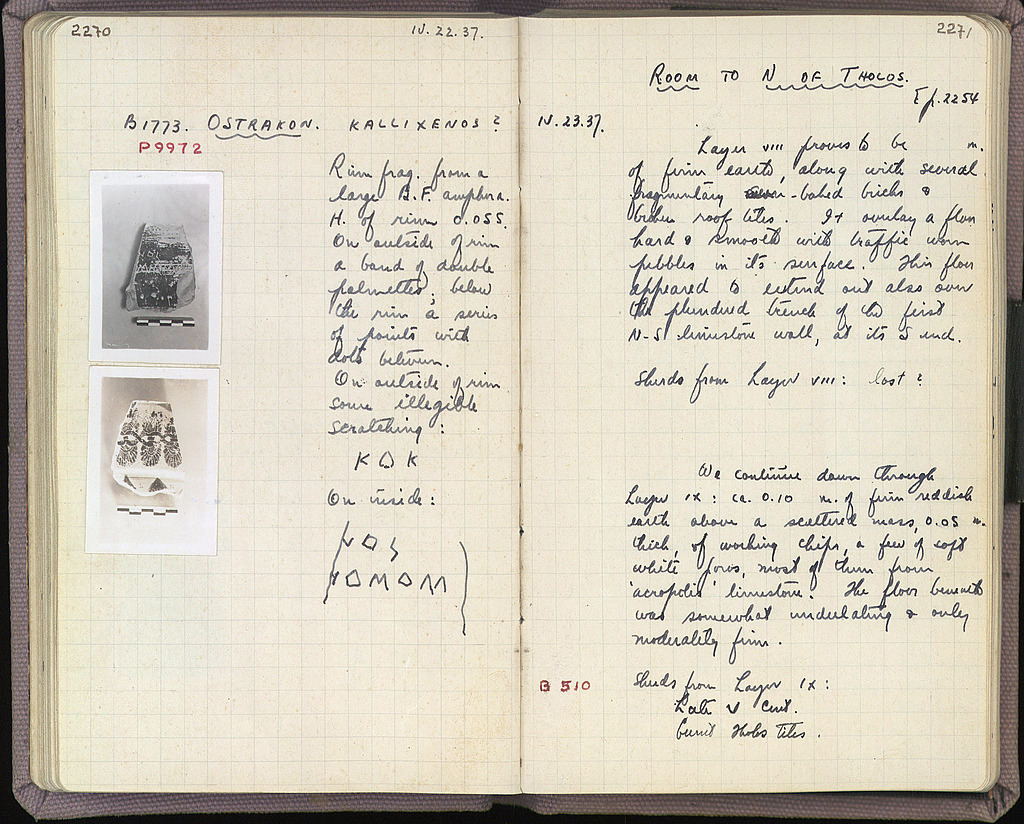 2270
IV. 22. 37.
B1773. OSTRAKON. KALLIXENOS?
P9972
Rim frag. from a
large B.F. amphora.
H. of rim 0.055.
On outside of rim
a band of double
palmettes; below
the rim a series
of points with
dots between.
On outside of rim
some illegible
scratching:
On inside:
2271
ROOM TO N OF THOLOS.
p. 2254
IV. 23. 37.
Layer VIII proves to be m.
of firm earth, along with several
fragmentary -baked bricks &
broken roof tiles. It overlay a floor
hard & smooth with traffic worn
pebbles in its surface. This floor
appeared to extend out also over
the plundered trench of the first
N-S limestone wall, at its S end.
Sherds from Layer VIII: lost?
We continue down through
Layer IX: ca. 0.10 m. of firm reddish
earth above a scattered mass, 0.05 m.
thick, of working chips, a few of soft
white poros, most of them from
'acropolis' limestone. The floor beneath
was somewhat undulating & only
moderately firm.
B 510
Sherds from Layer IX:
Late V cent.
Burnt Tholos tiles.